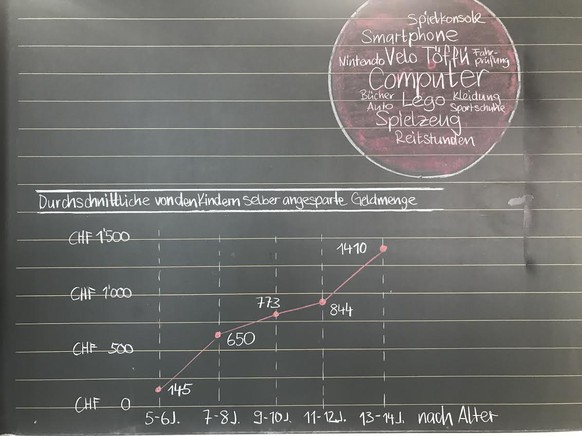 Spielkonsole
Smartphone
Nintendo Velo Töffli Fahr-
prüfung
Computer
Bücher Lego Kleidung
Auto Sportschuhe
Spielzeug
Reitstunden
Durchschnittliche von den Kindern selber angesparte Geldmenge
CHF 1'500
1410
CHF 1'000
773
844
CHF 500
650
145
CHF 0
5-6J. 7-8J. 9-10J. 11-12J. 13-14J. nach Alter